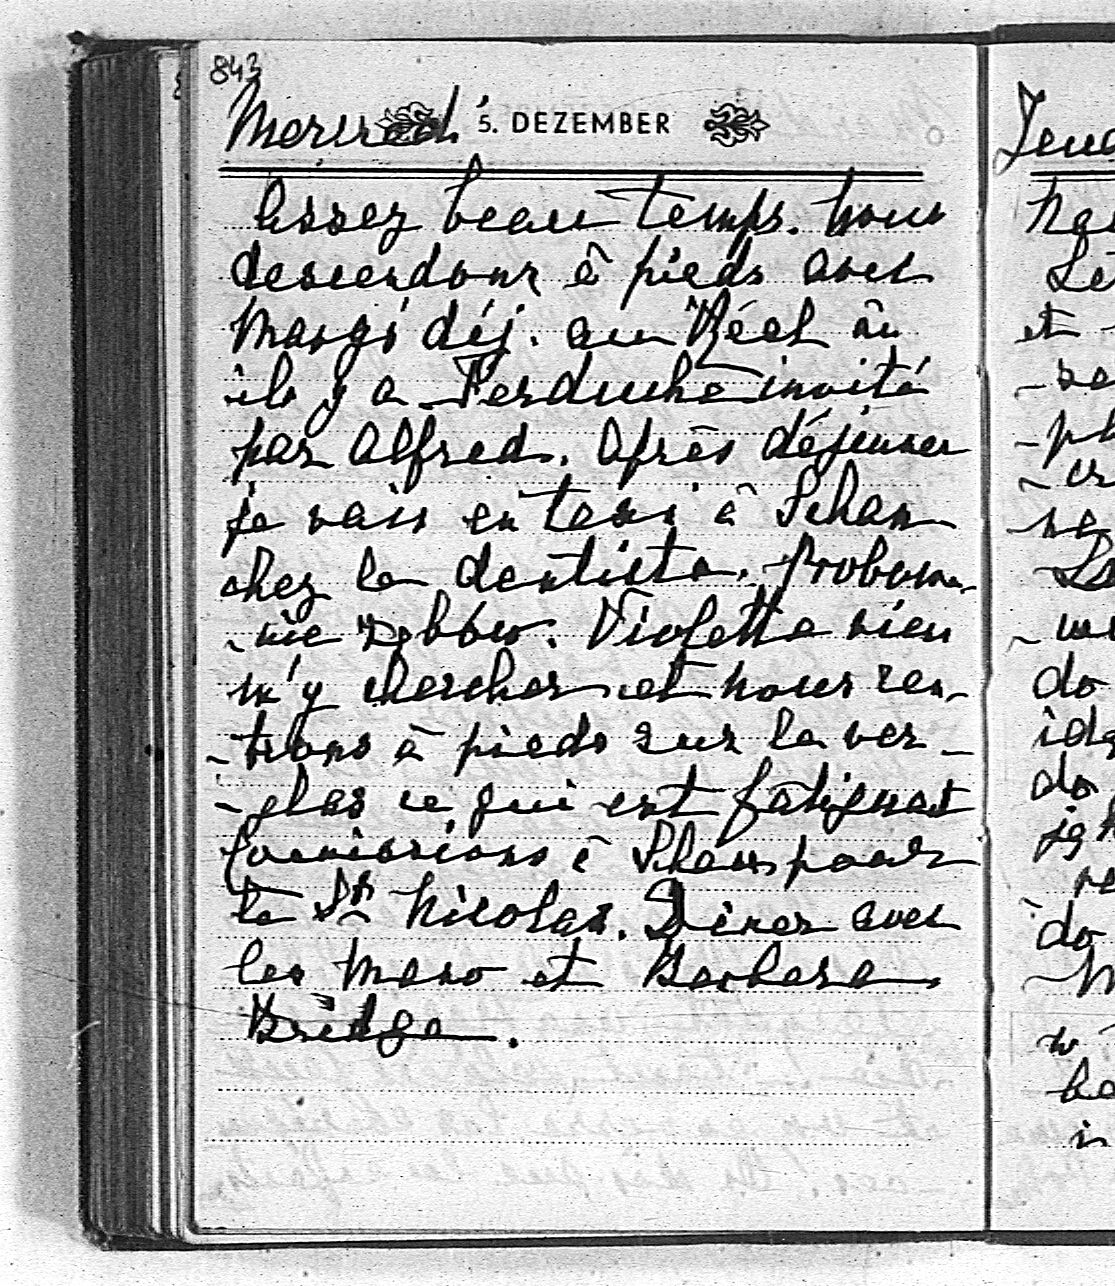 843
Mercredi 5. DEZEMBER
Assez beau temps. Nous
descendons à pieds avec
Margi déj. au Réel où
il y a Ferduche invité
par Alfred. Après déjeuner
je vais en taxi à Schan
chez le dentiste.
Violette vien
m'y chercher et nous ren-
-trons à pieds sur la ver-
-glas ce qui est fatignat
à Schan pour
la St Nicolas. Diner avec
les Maro et Barbara
Bridge.
Jeu
et
do
do
do